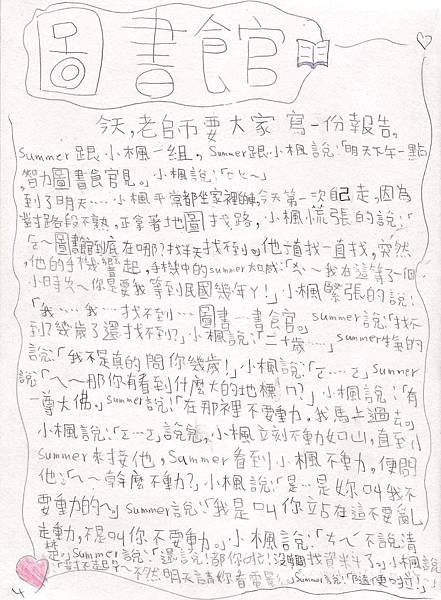 圖書館
今天,老師要大家寫一份報告,
Summer跟小楓一組,Summer跟小楓說:「明天下午一點
,智力圖書館見。」小楓說:「ㄛㄎ～」
到了明天……小楓平常都坐家裡的車,今天第一次自己走,因為
對路段不熟,正拿著地圖找路,小楓慌張的說:「
ㄜ～圖書館到底在哪?找半天找不到。」他一直找一直找,突然
,他的手機響起,手機中的summer大喊:「ㄟ～我在這等了一個
小時ㄌㄟ～你是要我等到民國幾年ㄚ!」小楓緊張的說:
「我……我…找不到…圖書…書館。」summer說:「找不
到?幾歲了還找不到?」小楓說:「二十歲……」summer生氣的
說:「我不是真的問你幾歲!」小楓說:「ㄛ……ㄛ」summer
說:「ㄟ～那你有看到什麼大的地標ㄇ?」小楓說:「有
一尊大佛。」summer說:「在那裡不要動,我馬上過去。」
小楓說:「ㄛ…ㄛ」說完,小楓立刻不動如山,直到
summer來接他,Summer看到小楓不動,便問
他:「ㄟ～幹麼不動?」小楓說:「是…是妳叫我不
要動的～」summer說:「我是叫你站在這不要亂
走動,不是叫你不要動。」小楓說:「ㄘㄟ～不說清
楚。」Summer說:「還說!都你啦!沒時間找資料了。」小楓說
:「對不起～不然明天請你看電影。」Summer說:「隨便啦!」
4